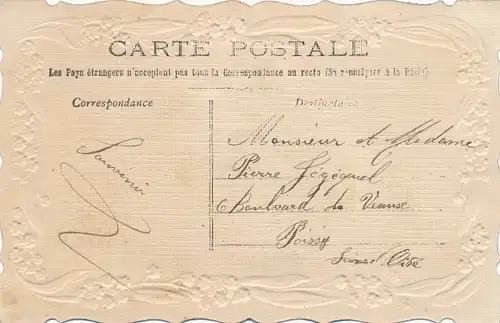 CARTE POSTALE
Les Pays étrangers n'acceptent pas tous la Correspondance au recto (Se renseigner à la Poste)
Correspondance
Destinataire
Souvenir
Monsieur et Madame
Pierre Jézéquel
6 Boulvard de
Poissy
Seine et Oise